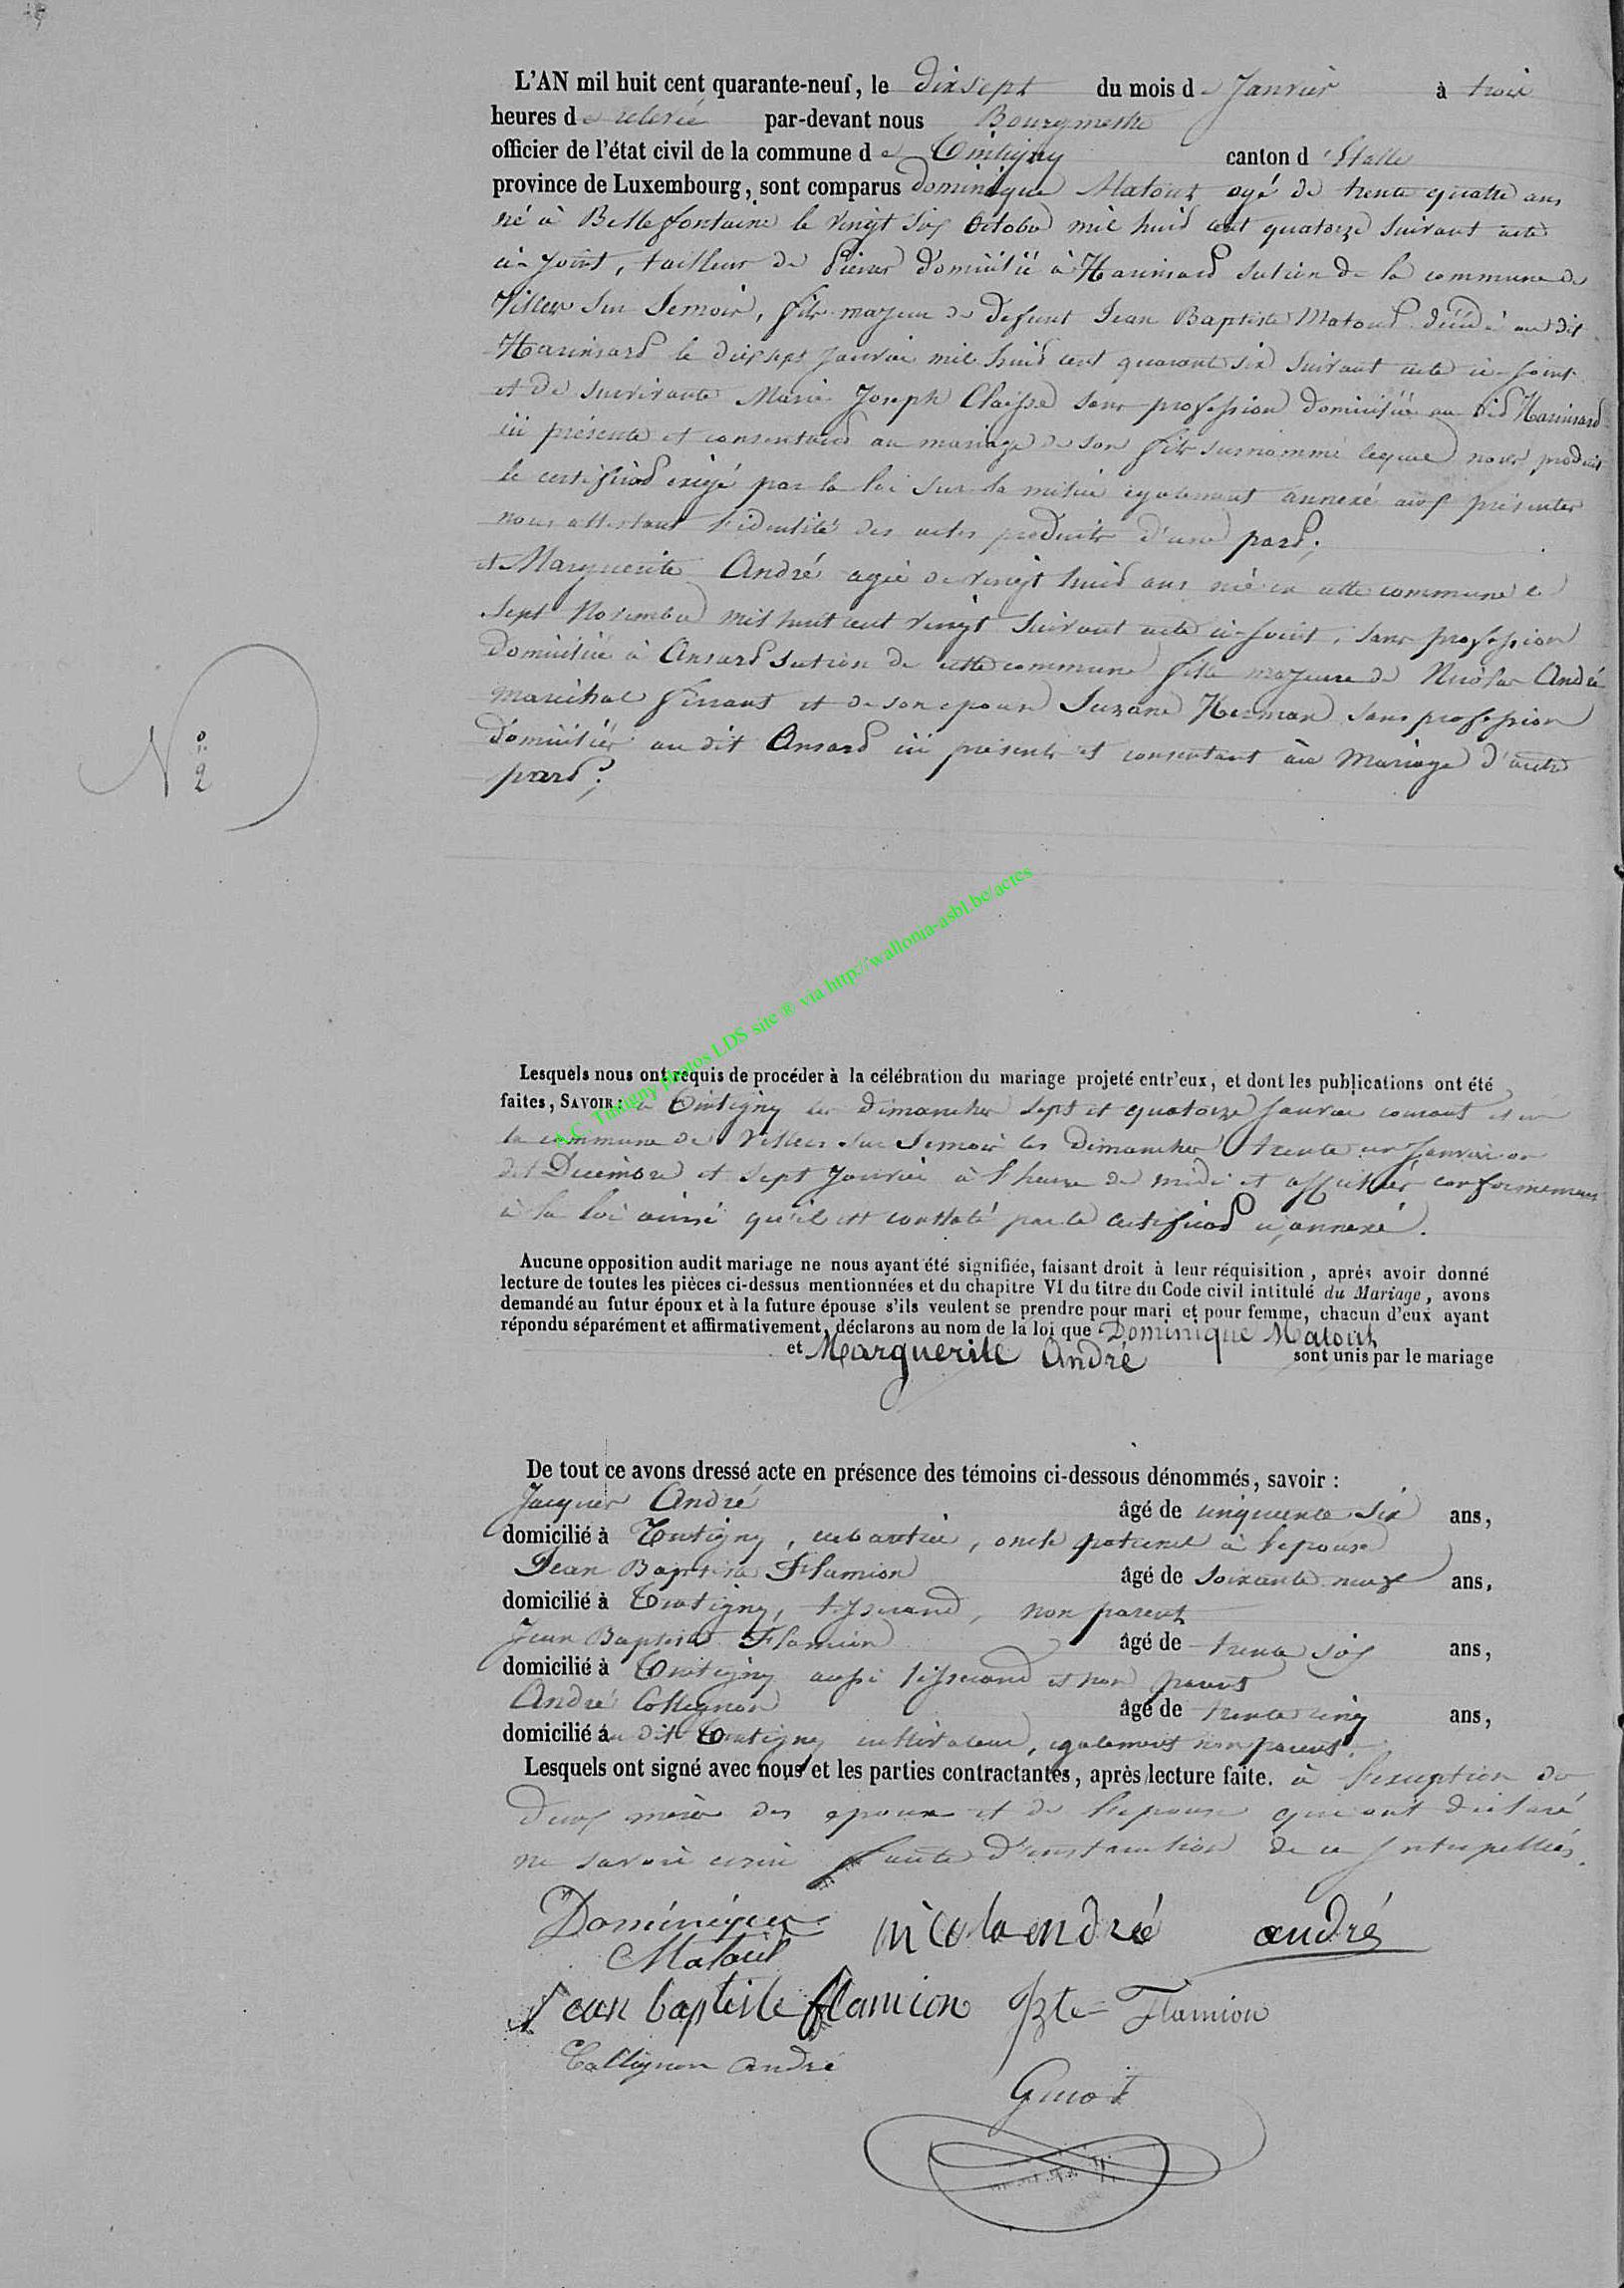 L'AN mil huit cent quarante-neuf, le dix sept du mois de Janvier à trois
heures de relevée par-devant nous Bourgmestre
officier de l'état civil de la commune de Tintigny canton d'Etalle
province de Luxembourg, sont comparus Dominique Matout agé de trente quatre ans
né à Bellefontaine le vingt six Octobre mil huit cent quatorze suivant acte
ci-joint, tailleur de Pierres domicilié à Harinsard section de la commune de
Villers sur Semois, fils majeur de defunt Jean Baptiste Matout décédé au dit
Harinsard le dix sept Janvier mil huit cent quarante six suivant acte ci-joint
et de survivante Marie Joseph Claisse sans profession domiciliée au dit Harinsard
ici présente et consentant au mariage de son fils surnommé lequel nous produit
le certificat exigé par la loi sur la milice egalement annexé
nous attestant l'identité des actes produits d'une part;
et Marguerite André agée de vingt huit ans née en cette commune le
sept Novembre mil huit cent vingt suivant acte ci-joint, sans profession
domiciliée à Ansart section de cette commune fille majeure de Nicolas André
maréchal ferrant et de son epouse Suzane Herman sans profession
domiciliés au dit Ansart ici présents et consentant au Mariage d'autre
part;
N° 2
E.C. Tintigny photos LDS site ® via http://wallonia-asbl.be/actes
Lesquels nous ont requis de procéder à la célébration du mariage projeté entr'eux, et dont les publications ont été
faites, SAVOIR: à Tintigny les dimanches sept et quatorze Janvier courant et en
la commune de Villers sur Semois les dimanches trente un Janvier
dit Decembre et sept Janvier à l'heure de midi et affichés conformement
à la loi ainsi qu'il est constaté par le certificat ci annexé.
Aucune opposition audit mariage ne nous ayant été signifiée, faisant droit à leur réquisition, après avoir donné
lecture de toutes les pièces ci-dessus mentionnées et du chapitre VI du titre du Code civil intitulé du Mariage, avons
demandé au futur époux et à la future épouse s'ils veulent se prendre pour mari et pour femme, chacun d'eux ayant
répondu séparément et affirmativement, déclarons au nom de la loi que Dominique Matout
et Marguerite André sont unis par le mariage
De tout ce avons dressé acte en présence des témoins ci-dessous dénommés, savoir :
Jacques André âgé de cinquante six ans,
domicilié à Tintigny, cabaretier, oncle paternel à l'epouse
Jean Baptiste Flamion âgé de soixante neuf ans,
domicilié à Tintigny, tisserand, non parent
Jean Baptiste Flamion âgé de trente six ans,
domicilié à Tintigny aussi tisserand et non parent
André Collignon âgé de trente cinq ans,
domicilié au dit Tintigny cultivateur, egalement non parent.
Lesquels ont signé avec nous et les parties contractantes, après lecture faite. à l'exception des
deux mères des epoux et de l'epouse qui ont declaré
ne savoir ecrire faute d'instruction de ce Interpellées.
Dominique nicola endré andré
Matout
Jean baptiste flamion JBte Flamion
Collignon andré
Guiot